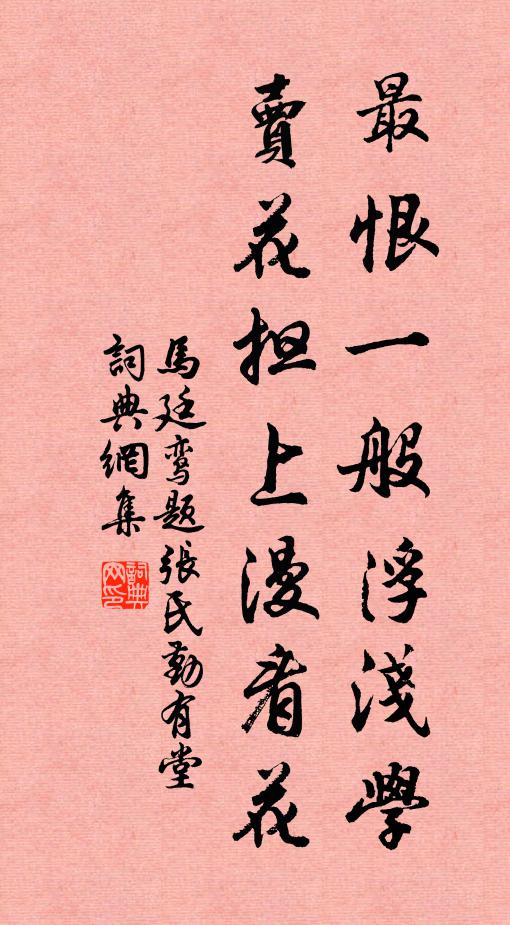 最恨一般浮淺學
賣花担上漫看花
馬廷鸞題張氏勤有堂
詞典網集
詞典网印